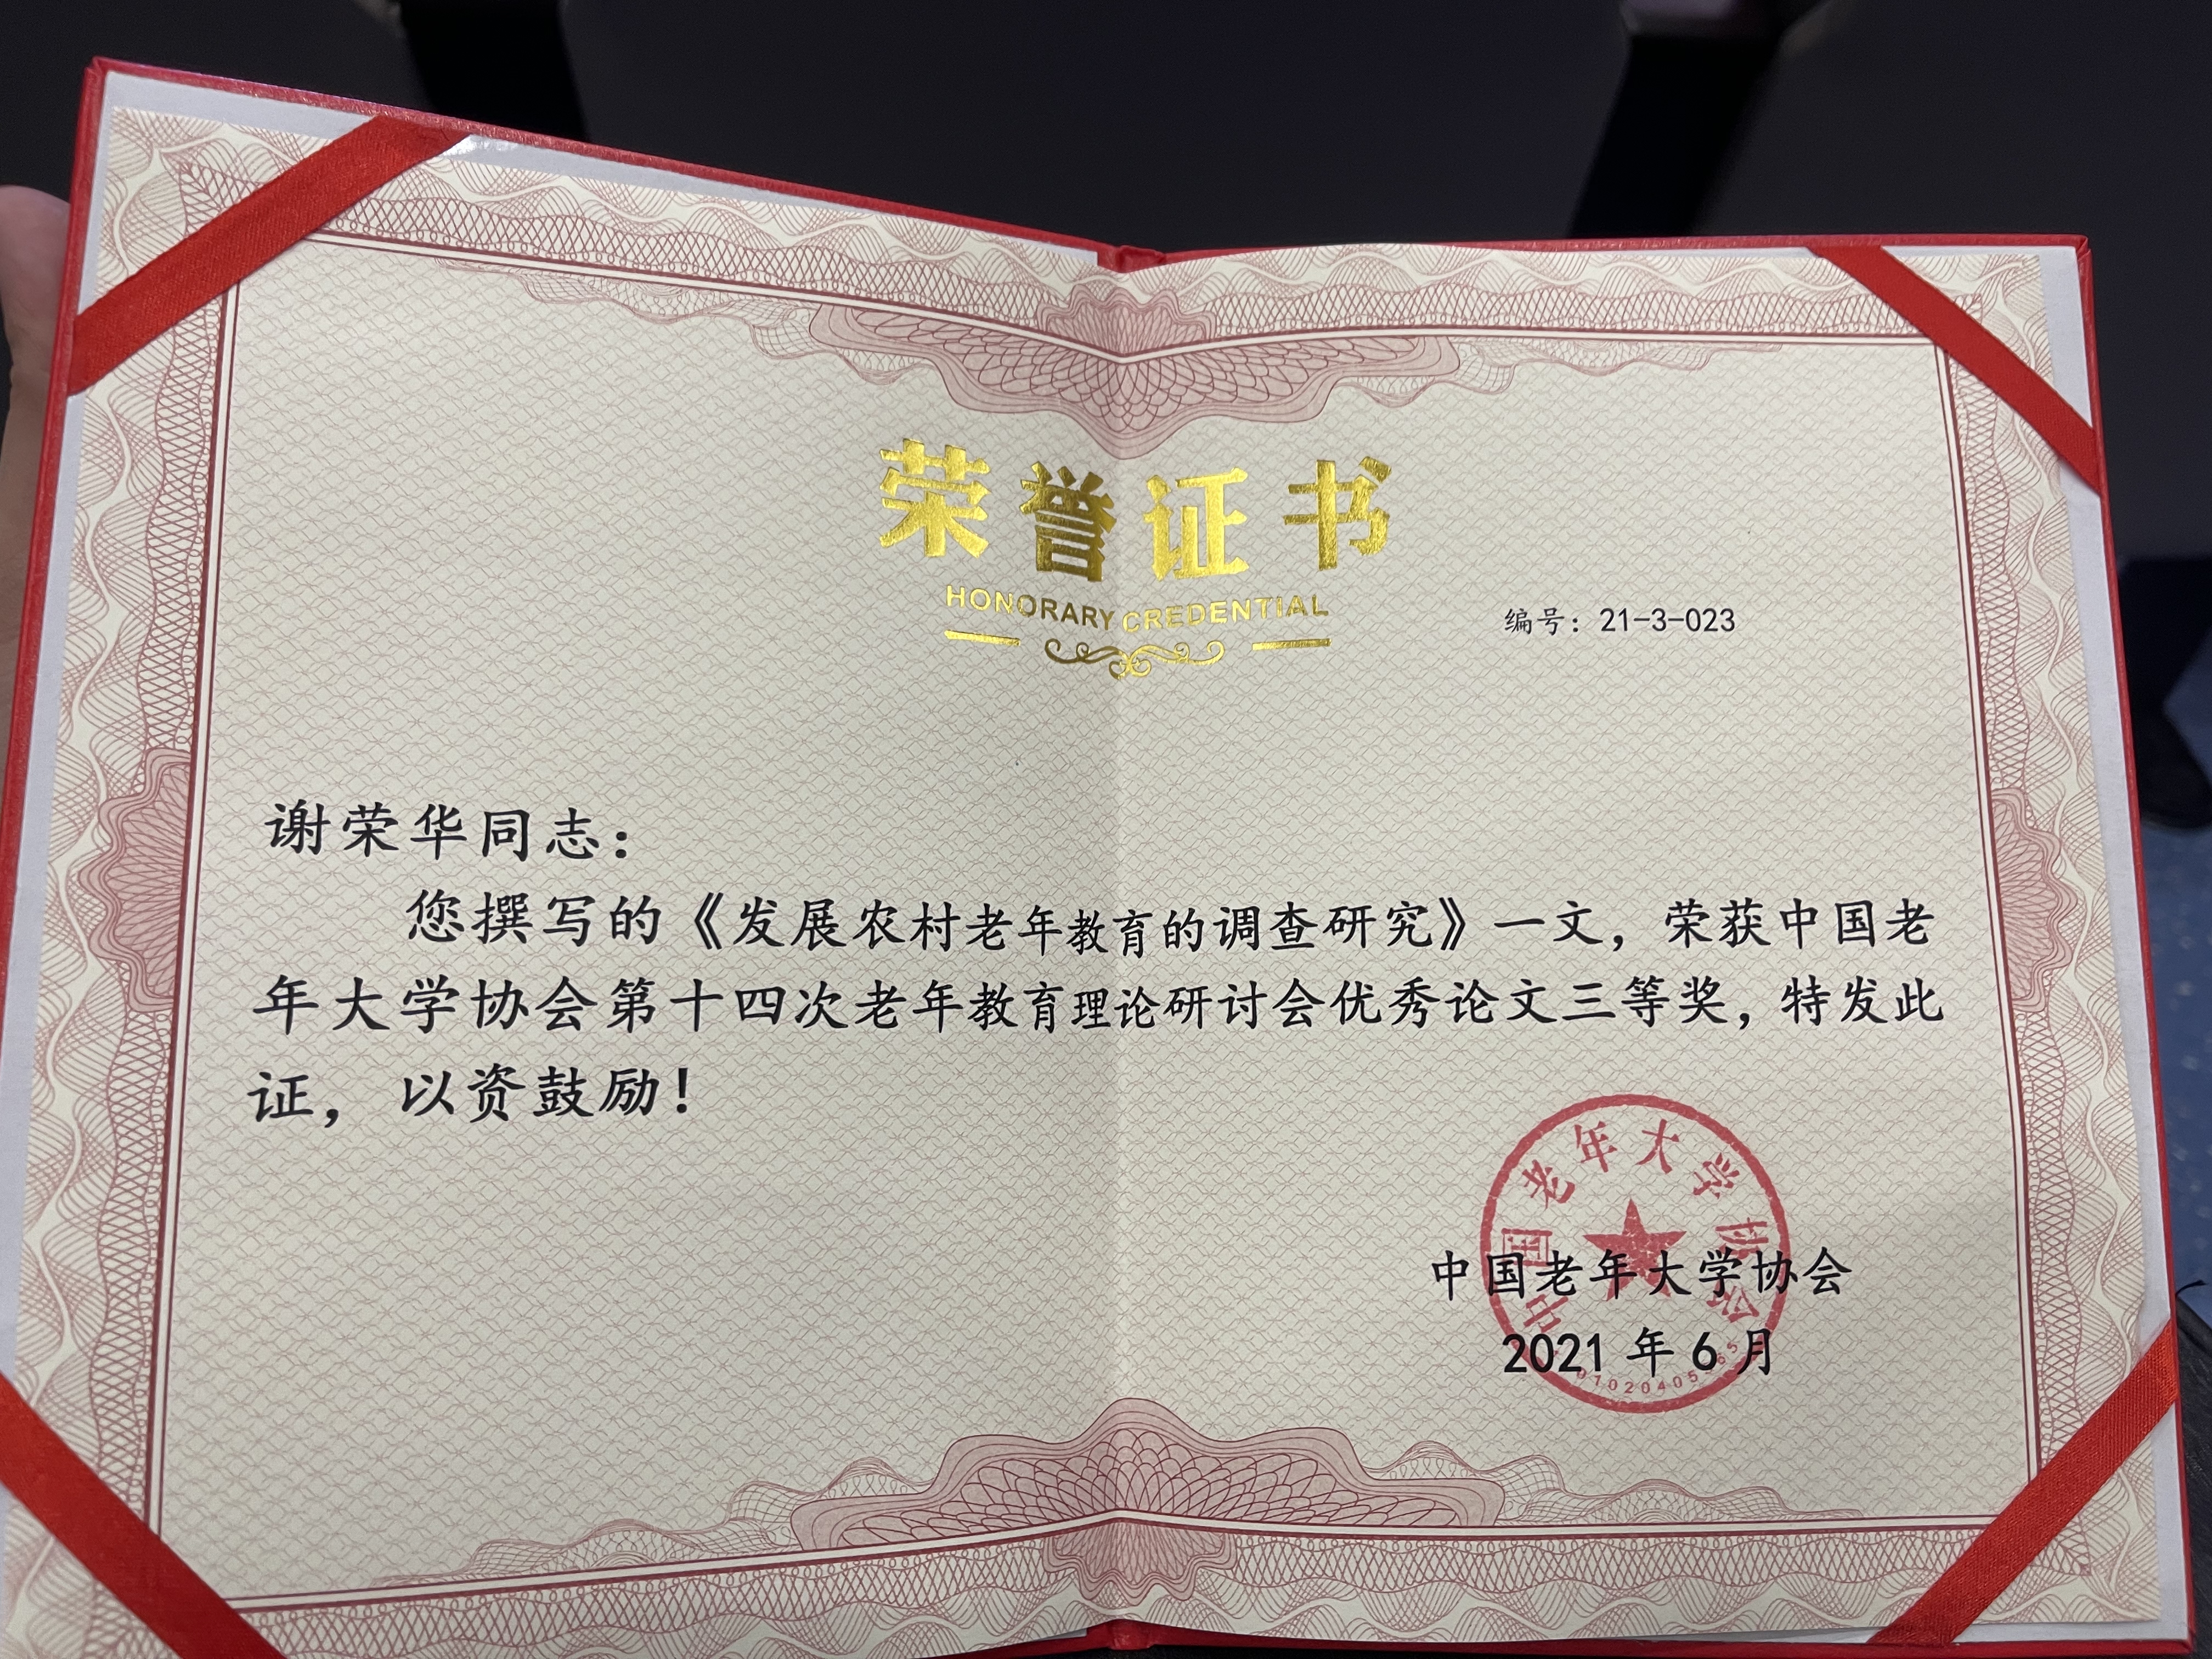 荣誉证书
HONORARY CREDENTIAL
编号：21-3-023
谢荣华同志：
您撰写的《发展农村老年教育的调查研究》一文，荣获中国老
年大学协会第十四次老年教育理论研讨会优秀论文三等奖，特发此
证，以资鼓励！
中国老年大学协会
中国老年大学协会
2021 年 6 月